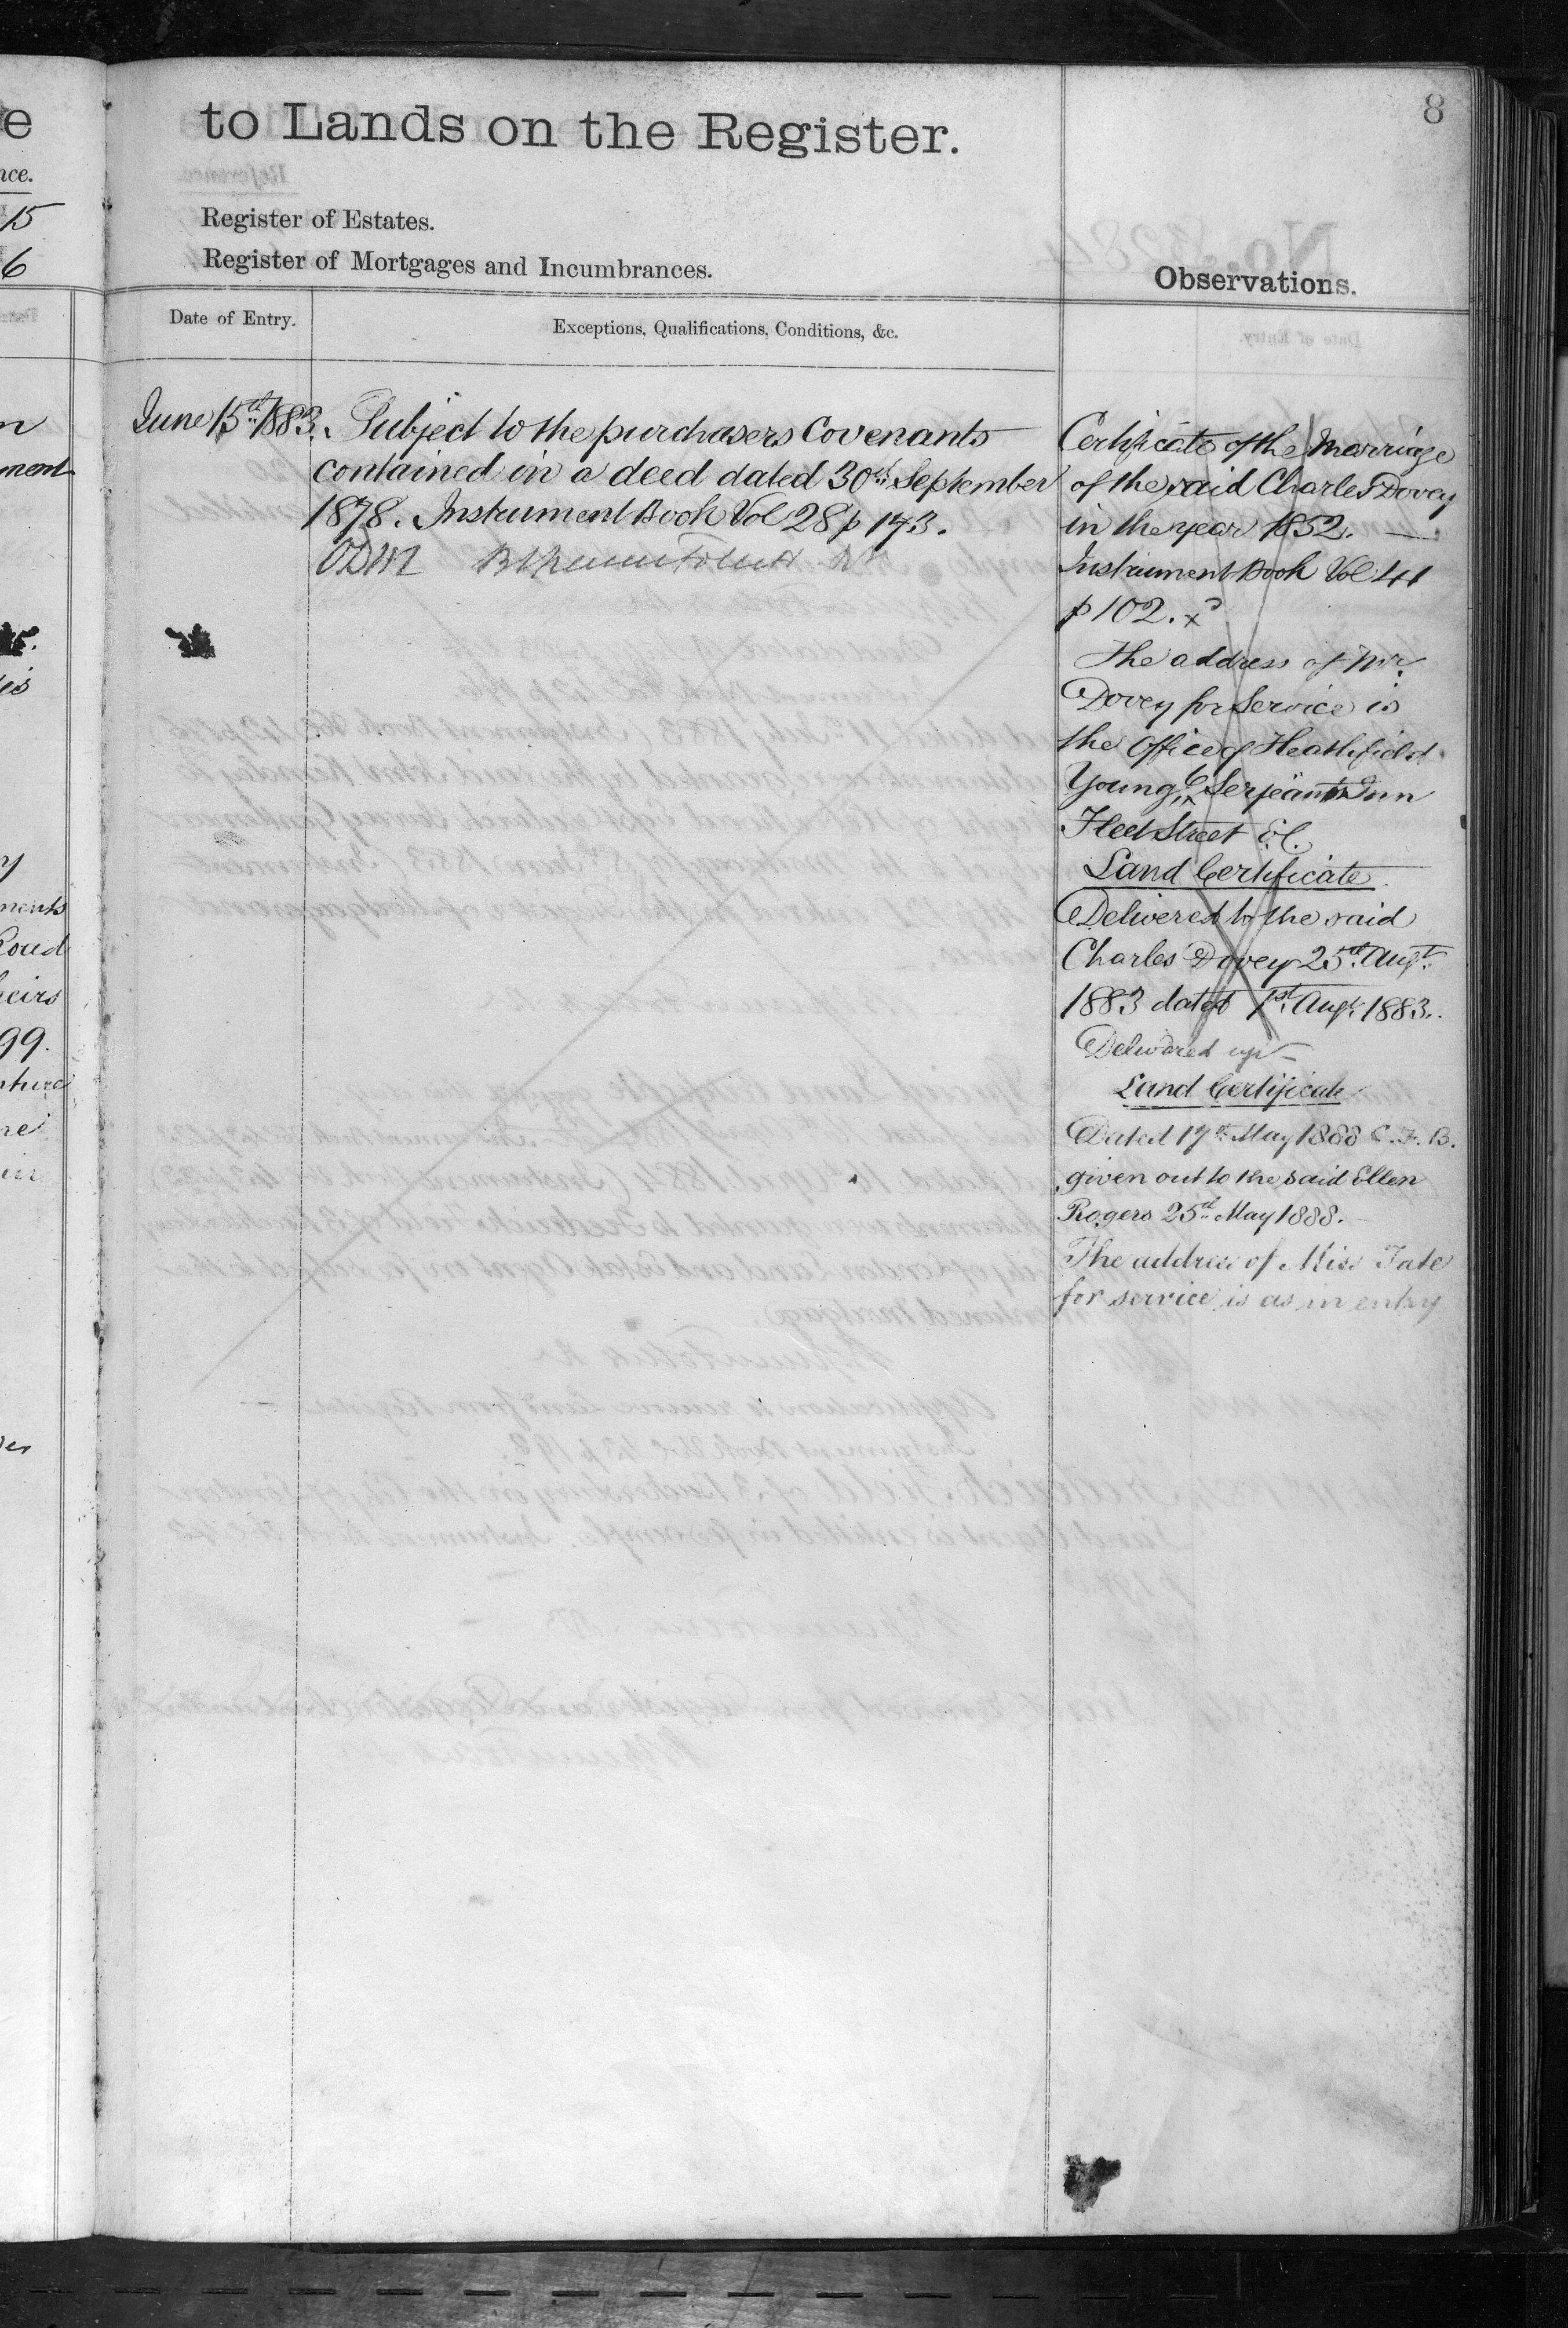 8
to Lands on the Register.
Register of Estates.
Register of Mortgages and Incumbrances.
Observations.
Date of Entry.
Exceptions, Qualifications, Conditions, &c.
June 15th 1883.
Subject to the purchasers Covenants
contained in a deed dated 30th September
1878. Instrument Book Vol 28 p 143.
Certificate of the Marriage
of the said Charles Dovey
in the year 1852. —
Instrument Book Vol 41
p 102. x
The address of Mr.
Dovey for Service is
the Office of Heathfield
Young 6 Serjeants Inn
Fleet Street E.C.
Land Certificate
Delivered to the said
Charles Dovey 25th Augt.
1883 dated 1st Augt. 1883.
Delivered up —
Land Certificate
Dated 17th May 1888 C. F. B.
given out to the said Ellen
Rogers 25th May 1888. —
The address of Miss Tate
for service is as in entry
e
nce.
15
6
n
ment
es
y
ments
oud
heirs
99.
re